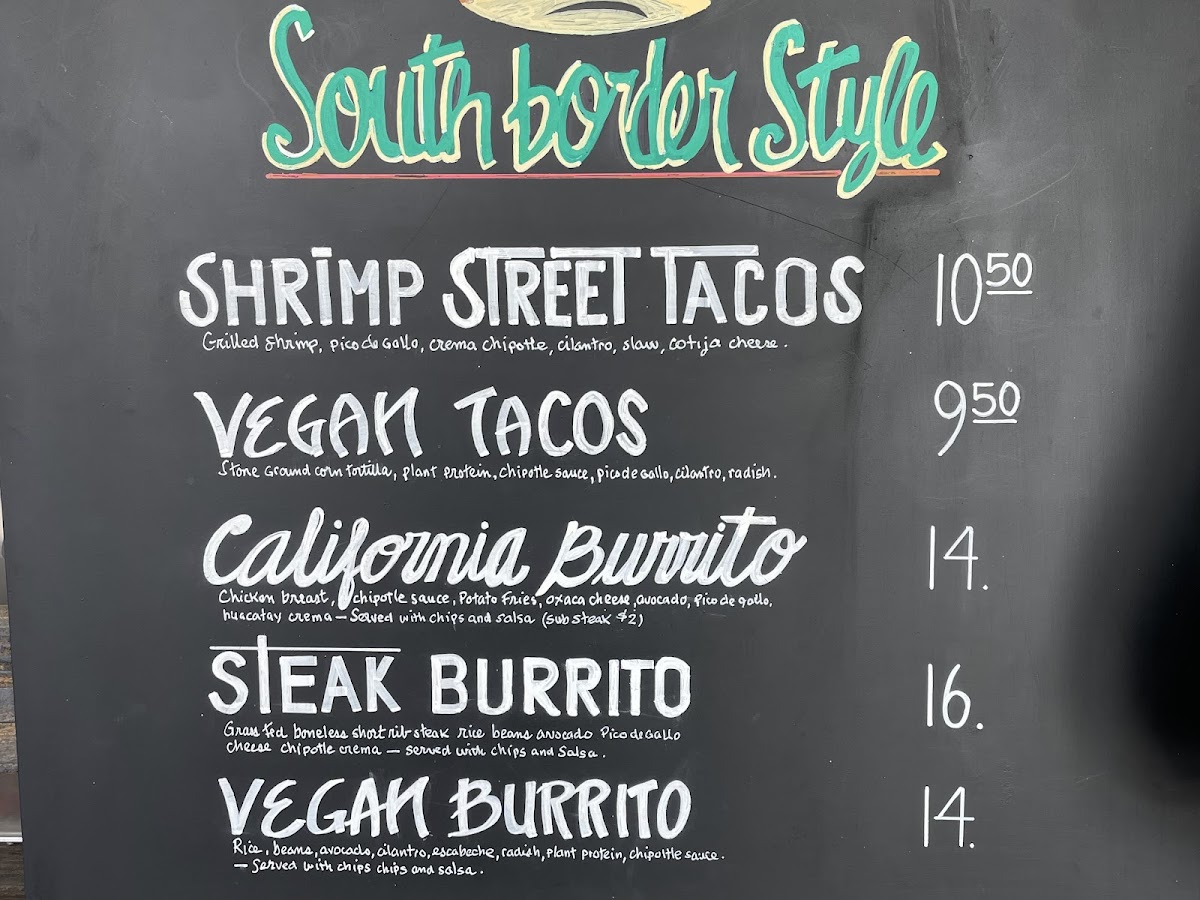 South border Style
SHRIMP STREET TACOS 10 50
Grilled Shrimp, pico de Gallo, crema chipotle, cilantro, slaw, cotija cheese.
VEGAN TACOS 9 50
Stone Ground corn tortilla, plant protein, chipotle sauce, pico de Gallo, cilantro, radish.
California Burrito 14.
Chicken breast, chipotle sauce, Potato Fries, oxaca cheese, avocado, Pico de gallo,
huacatay crema — Served with chips and salsa (sub steak $2)
STEAK BURRITO 16.
Grass fed boneless short rib steak rice beans avocado Pico de Gallo
cheese chipotle crema — served with chips and Salsa.
VEGAN BURRITO 14.
Rice, beans, avocado, cilantro, escabeche, radish, plant protein, chipottle sauce.
— Served with chips chips and salsa.